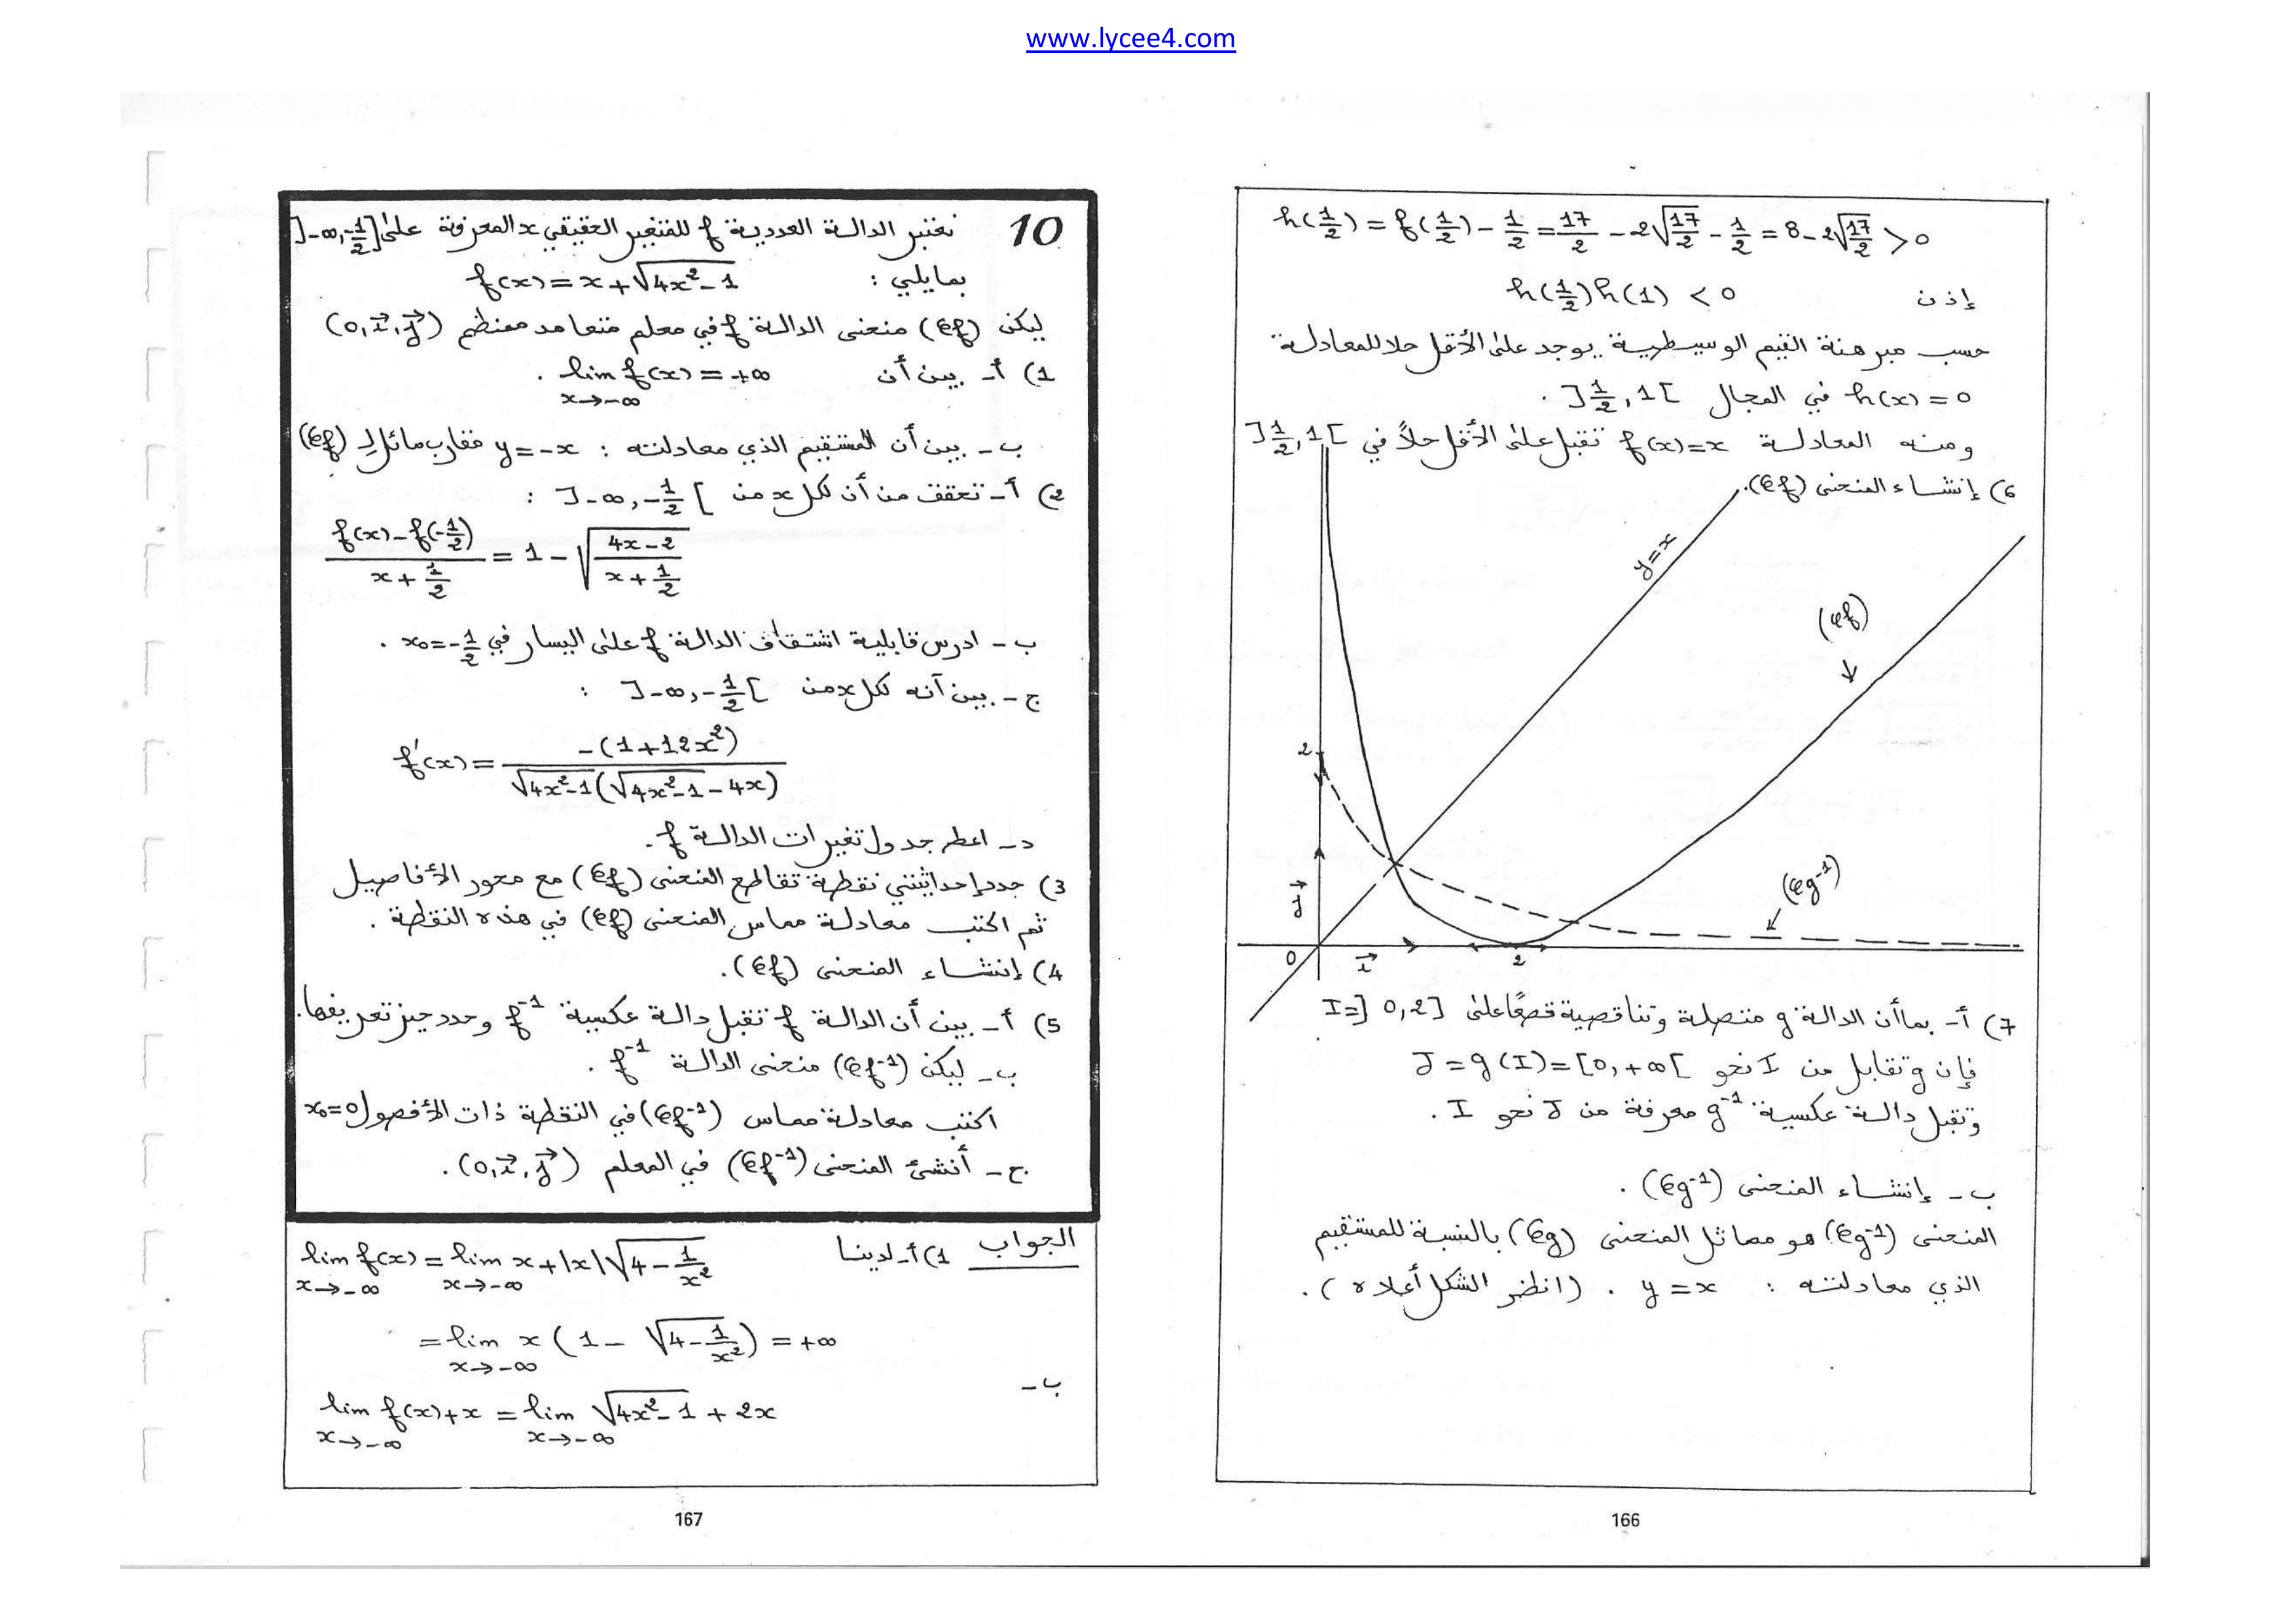 www.lycee4.com
h(1/2) = f(1/2) - 1/2 = 17/2 - 2√(17/2) - 1/2 = 8 - 2√(17/2) > 0
إذن h(1/2)h(1) < 0
حسب مبرهنة القيم الوسيطرية يوجد على الأقل حلا للمعادلة
h(x) = 0 في المجال ]1/2, 1[ .
ومنه المعادلة f(x)=x تقبل على الأقل حلاً في ]1/2, 1[
6) إنشاء المنحنى (Cf).
y=x
(Cf)
2
(Cg⁻¹)
j
0 i 2
7) أ- بما أن الدالة g متصلة وتناقصية قطعًا على I=]0,2]
فإن g تقابل من I نحو J = g(I) = [0,+∞[
وتقبل دالة عكسية g⁻¹ معرفة من J نحو I .
ب - إنشاء المنحنى (Cg⁻¹) .
المنحنى (Cg⁻¹) هو مماثل المنحنى (Cg) بالنسبة للمستقيم
الذي معادلته : y = x . (انظر الشكل أعلاه) .
166
10 نعتبر الدالة العددية f للمتغير الحقيقي x المعرفة على ]-∞,-1/2]
بمايلي : f(x) = x + √(4x²-1)
ليكن (Cf) منحنى الدالة f في معلم متعامد ممنظم (0,i⃗,j⃗)
1) أ- بين أن lim f(x) = +∞ .
x→-∞
ب - بين أن المستقيم الذي معادلته : y=-x مقارب مائل لـ (Cf)
2) أ- تحقق من أن لكل x من ]-∞,-1/2[ :
(f(x)-f(-1/2))/(x+1/2) = 1 - √((4x-2)/(x+1/2))
ب - ادرس قابلية اشتقاق الدالة f على اليسار في x₀=-1/2 .
ج - بين أنه لكل x من ]-∞,-1/2[ :
f'(x) = -(1+12x²)/(√(4x²-1)(√(4x²-1)-4x))
د - اعط جدول تغيرات الدالة f.
3) حدد إحداثيتي نقطة تقاطع المنحنى (Cf) مع محور الأفاصيل
ثم اكتب معادلة مماس المنحنى (Cf) في هذه النقطة .
4) إنشاء المنحنى (Cf).
5) أ - بين أن الدالة f تقبل دالة عكسية f⁻¹ وحدد حيز تعريفها.
ب - ليكن (Cf⁻¹) منحنى الدالة f⁻¹ .
اكتب معادلة مماس (Cf⁻¹) في النقطة ذات الأفصول x₀=0
ج - أنشئ المنحنى (Cf⁻¹) في المعلم (0,i⃗,j⃗) .
الجواب 1) أ- لدينا lim f(x) = lim x+|x|√(4-1/x²)
x→-∞ x→-∞
= lim x(1 - √(4-1/x²)) = +∞
x→-∞
ب -
lim f(x)+x = lim √(4x²-1) + 2x
x→-∞ x→-∞
167